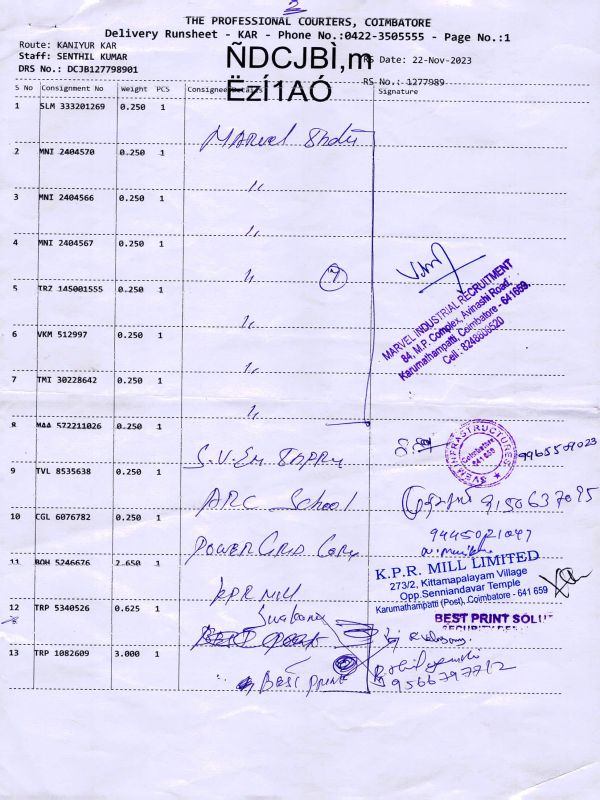 2
THE PROFESSIONAL COURIERS, COIMBATORE
Delivery Runsheet - KAR - Phone No.:0422-3505555 - Page No.:1
Route: KANIYUR KAR
Staff: SENTHIL KUMAR RS Date: 22-Nov-2023
DRS No.: DCJB127798901
ÑDCJBÌ,m
ËzÍ1AÓ
RS No.: 1277989
S No Consignment No Weight PCS Consignee Details Signature
1 SLM 333201269 0.250 1
Marvel
2 MNI 2404570 0.250 1
"
3 MNI 2404566 0.250 1
"
4 MNI 2404567 0.250 1
" 7
5 TRZ 145001555 0.250 1
"
6 VKM 512997 0.250 1
"
7 TMI 30228642 0.250 1
"
MARVEL INDUSTRIAL RECRUITMENT
84, M.P. Complex, Avinashi Road,
Karumathampatti, Coimbatore - 641659.
Cell : 8248608520
8 MAA 572211026 0.250 1
S.V.Em
SVEM INFRASTRUCTURES
Coimbatore
641 659
9965509023
9 TVL 8535638 0.250 1
ARC School
9150637095
10 CGL 6076782 0.250 1
Power Grid Corp
9445021047
11 BOH 5246676 2.650 1
KPR Mill
K.P.R. MILL LIMITED
273/2, Kittamapalayam Village
Opp.Senniandavar Temple
Karumathampatti (Post), Coimbatore - 641 659
12 TRP 5340526 0.625 1
BEST PRINT SOLUT
13 TRP 1082609 3.000 1
Best Print
9566797712